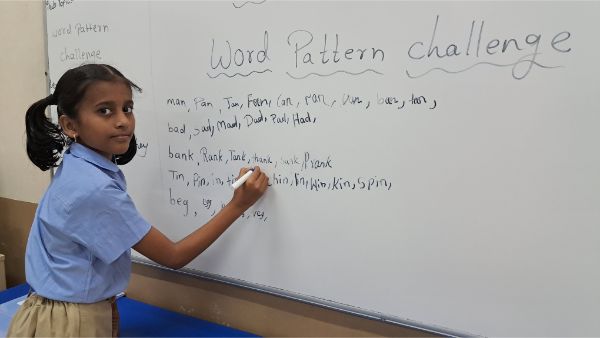 word Pattern
challenge
Word Pattern challenge
man, Pan, Jan, Fan, Can, ran, Van, ban, tan,
bad, sad, Mad, Dad, Pad, Had,
bank, Rank, Tank, thank, sank, Prank
Tin, Pin, in, Win, Kin, Spin,
beg,